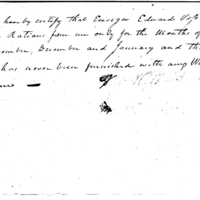 hereby certify that Ensign Edward
Rations from me only for the Months of
ember, December and January and th
has never been furnished with any W